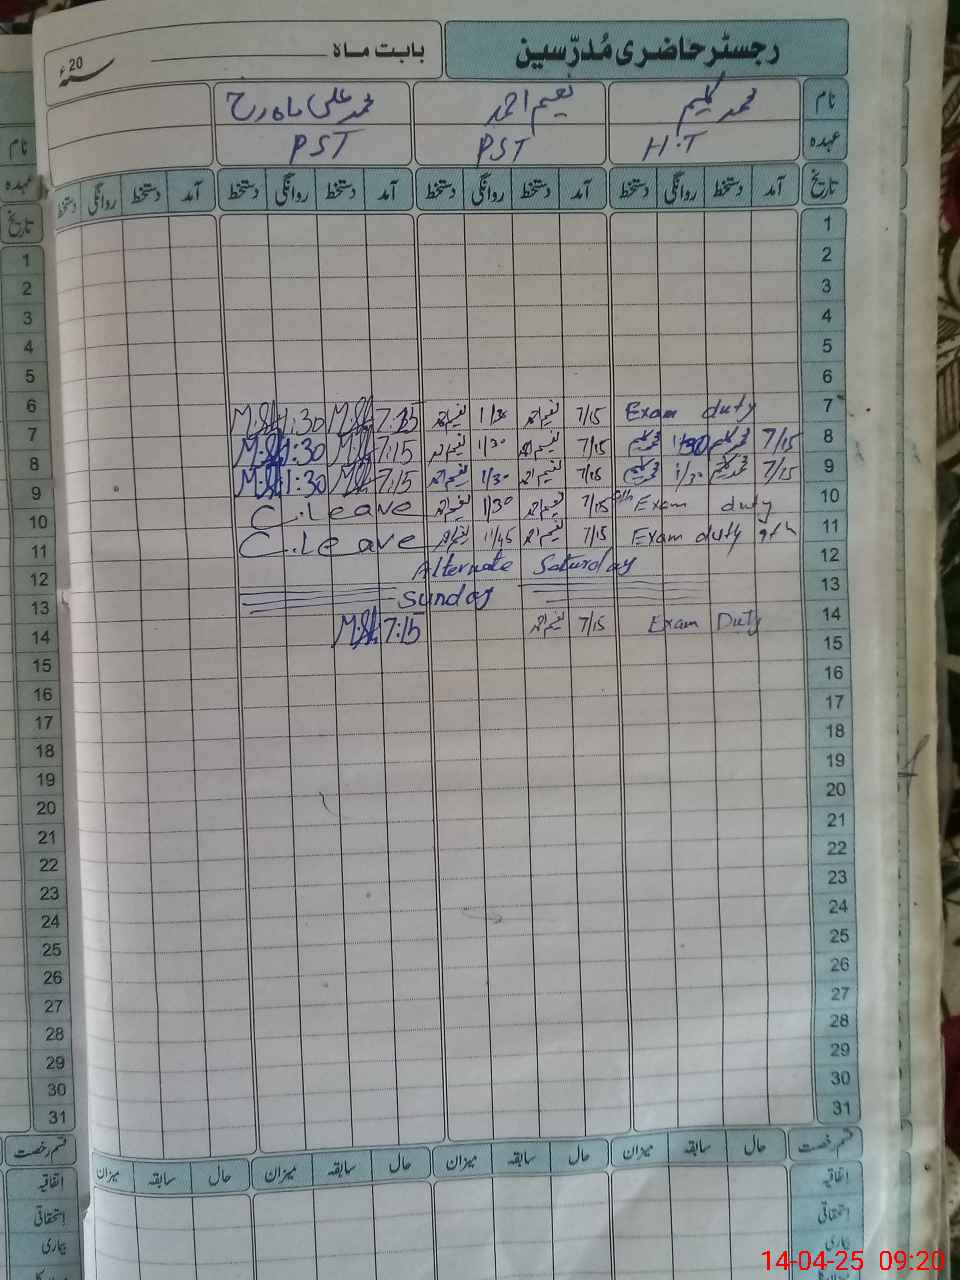 رجسٹر حاضری مُدرّسین
بابت ماہ
20 سنہء
نام محمد کلیم نعیم احمد محمد علی ماہ رخ
عہدہ H.T PST PST
تاریخ آمد دستخط روانگی دستخط آمد دستخط روانگی دستخط آمد دستخط روانگی دستخط آمد دستخط روانگی دستخط
1
2
3
4
5
6
7 Exam duty 7/15 نعیم احمد 1/30 نعیم احمد 7:15 1:30
8 7/15 محمد کلیم 1:30 محمد کلیم 7/15 نعیم احمد 1/30 نعیم احمد 7:15 1:30
9 7/15 محمد کلیم 1/30 محمد کلیم 7/15 نعیم احمد 1/30 نعیم احمد 7:15 1:30
10 9th Exam duty 7/15 نعیم احمد 1/30 نعیم احمد C.leave
11 Exam duty 9th 7/15 نعیم احمد 11/45 نعیم احمد C.leave
12 Alternate Saturday
13 Sunday
14 Exam Duty 7/15 نعیم احمد 7:15
15
16
17
18
19
20
21
22
23
24
25
26
27
28
29
30
31
قسم رخصت حال سابقہ میزان حال سابقہ میزان حال سابقہ میزان حال سابقہ میزان
اتفاقیہ
استحقاقی
بیماری
نام
عہدہ
تاریخ
1
2
3
4
5
6
7
8
9
10
11
12
13
14
15
16
17
18
19
20
21
22
23
24
25
26
27
28
29
30
31
قسم رخصت
اتفاقیہ
استحقاقی
بیماری
14-04-25 09:20